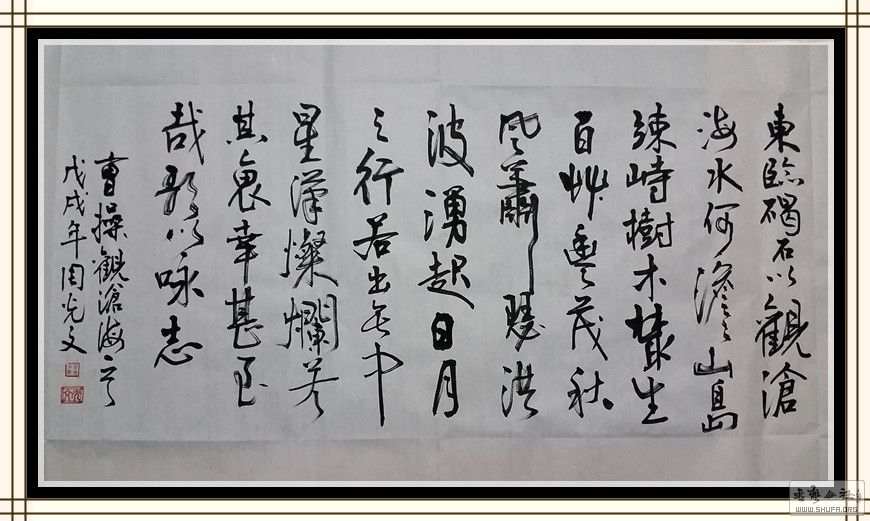 東臨碣石以觀滄
海水何澹々山島
竦峙樹木叢生
百艸豐茂秋
风蕭瑟洪
波湧起日月
之行若出其中
星漢燦爛若
其裏幸甚至
哉歌以咏志
曹操觀滄海
戊戌年周光文
WWW.SHUFA.ORG